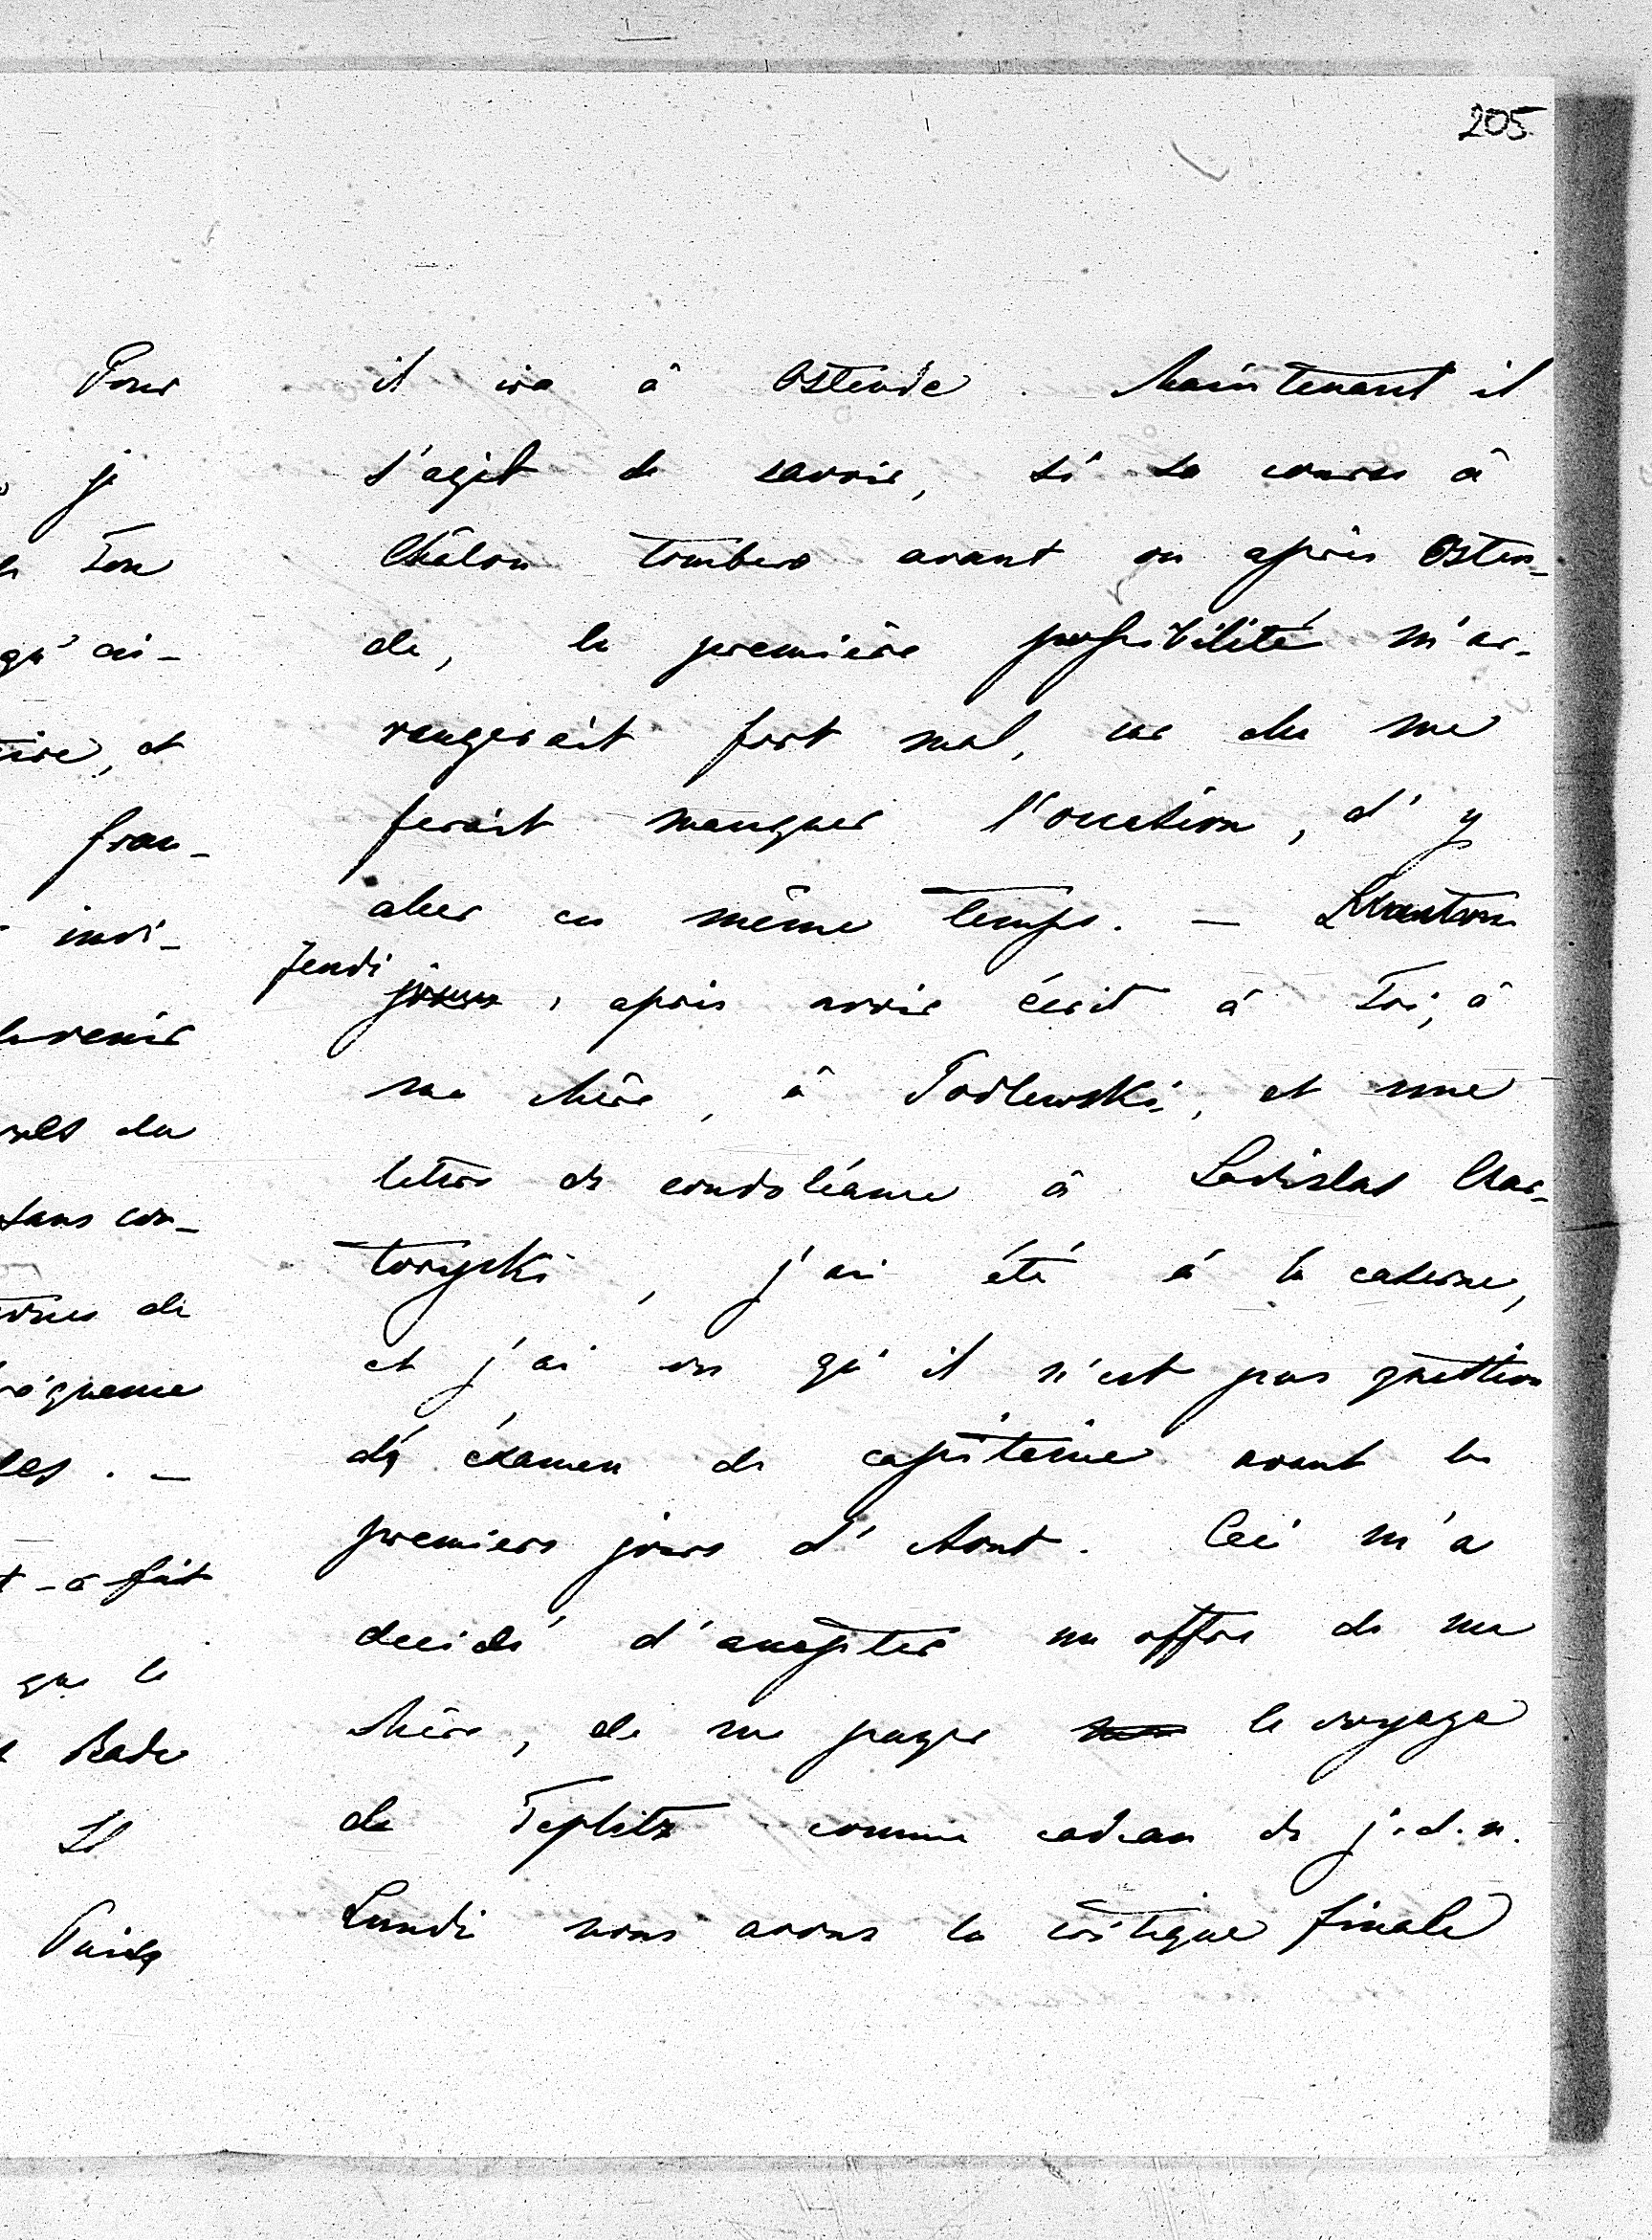 205
Pour
je
Ton
qu'ai-
et
fran-
invi-
venir
du
sans con-
de
les. —
t-à-fait
que le
Bade
Il
Paris
il ira à Ostende. Maintenant il
s'agit de savoir, si sa course à
Châlon tombera avant ou après Osten-
de, la première possibilité m'ar-
rangerait fort mal, car elle me
ferait manquer l'occasion, d'y
aller en même temps. —
jeudi
, après avoir écrit à Toi, à
ma Mère, à Podlewski, et une
lettre de condoléance à Ladislas Czar-
toryski, j'ai été à la caserne,
et j'ai vu qu'il n'est pas question
d' éxamen de capitaine avant les
premiers jours d'Aout. Ceci m'a
decidé d'accepter un offre de ma
Mère, de me payer le voyage
de Teplitz comme cadeau de j.d.n.
Lundi nous avons la critique finale